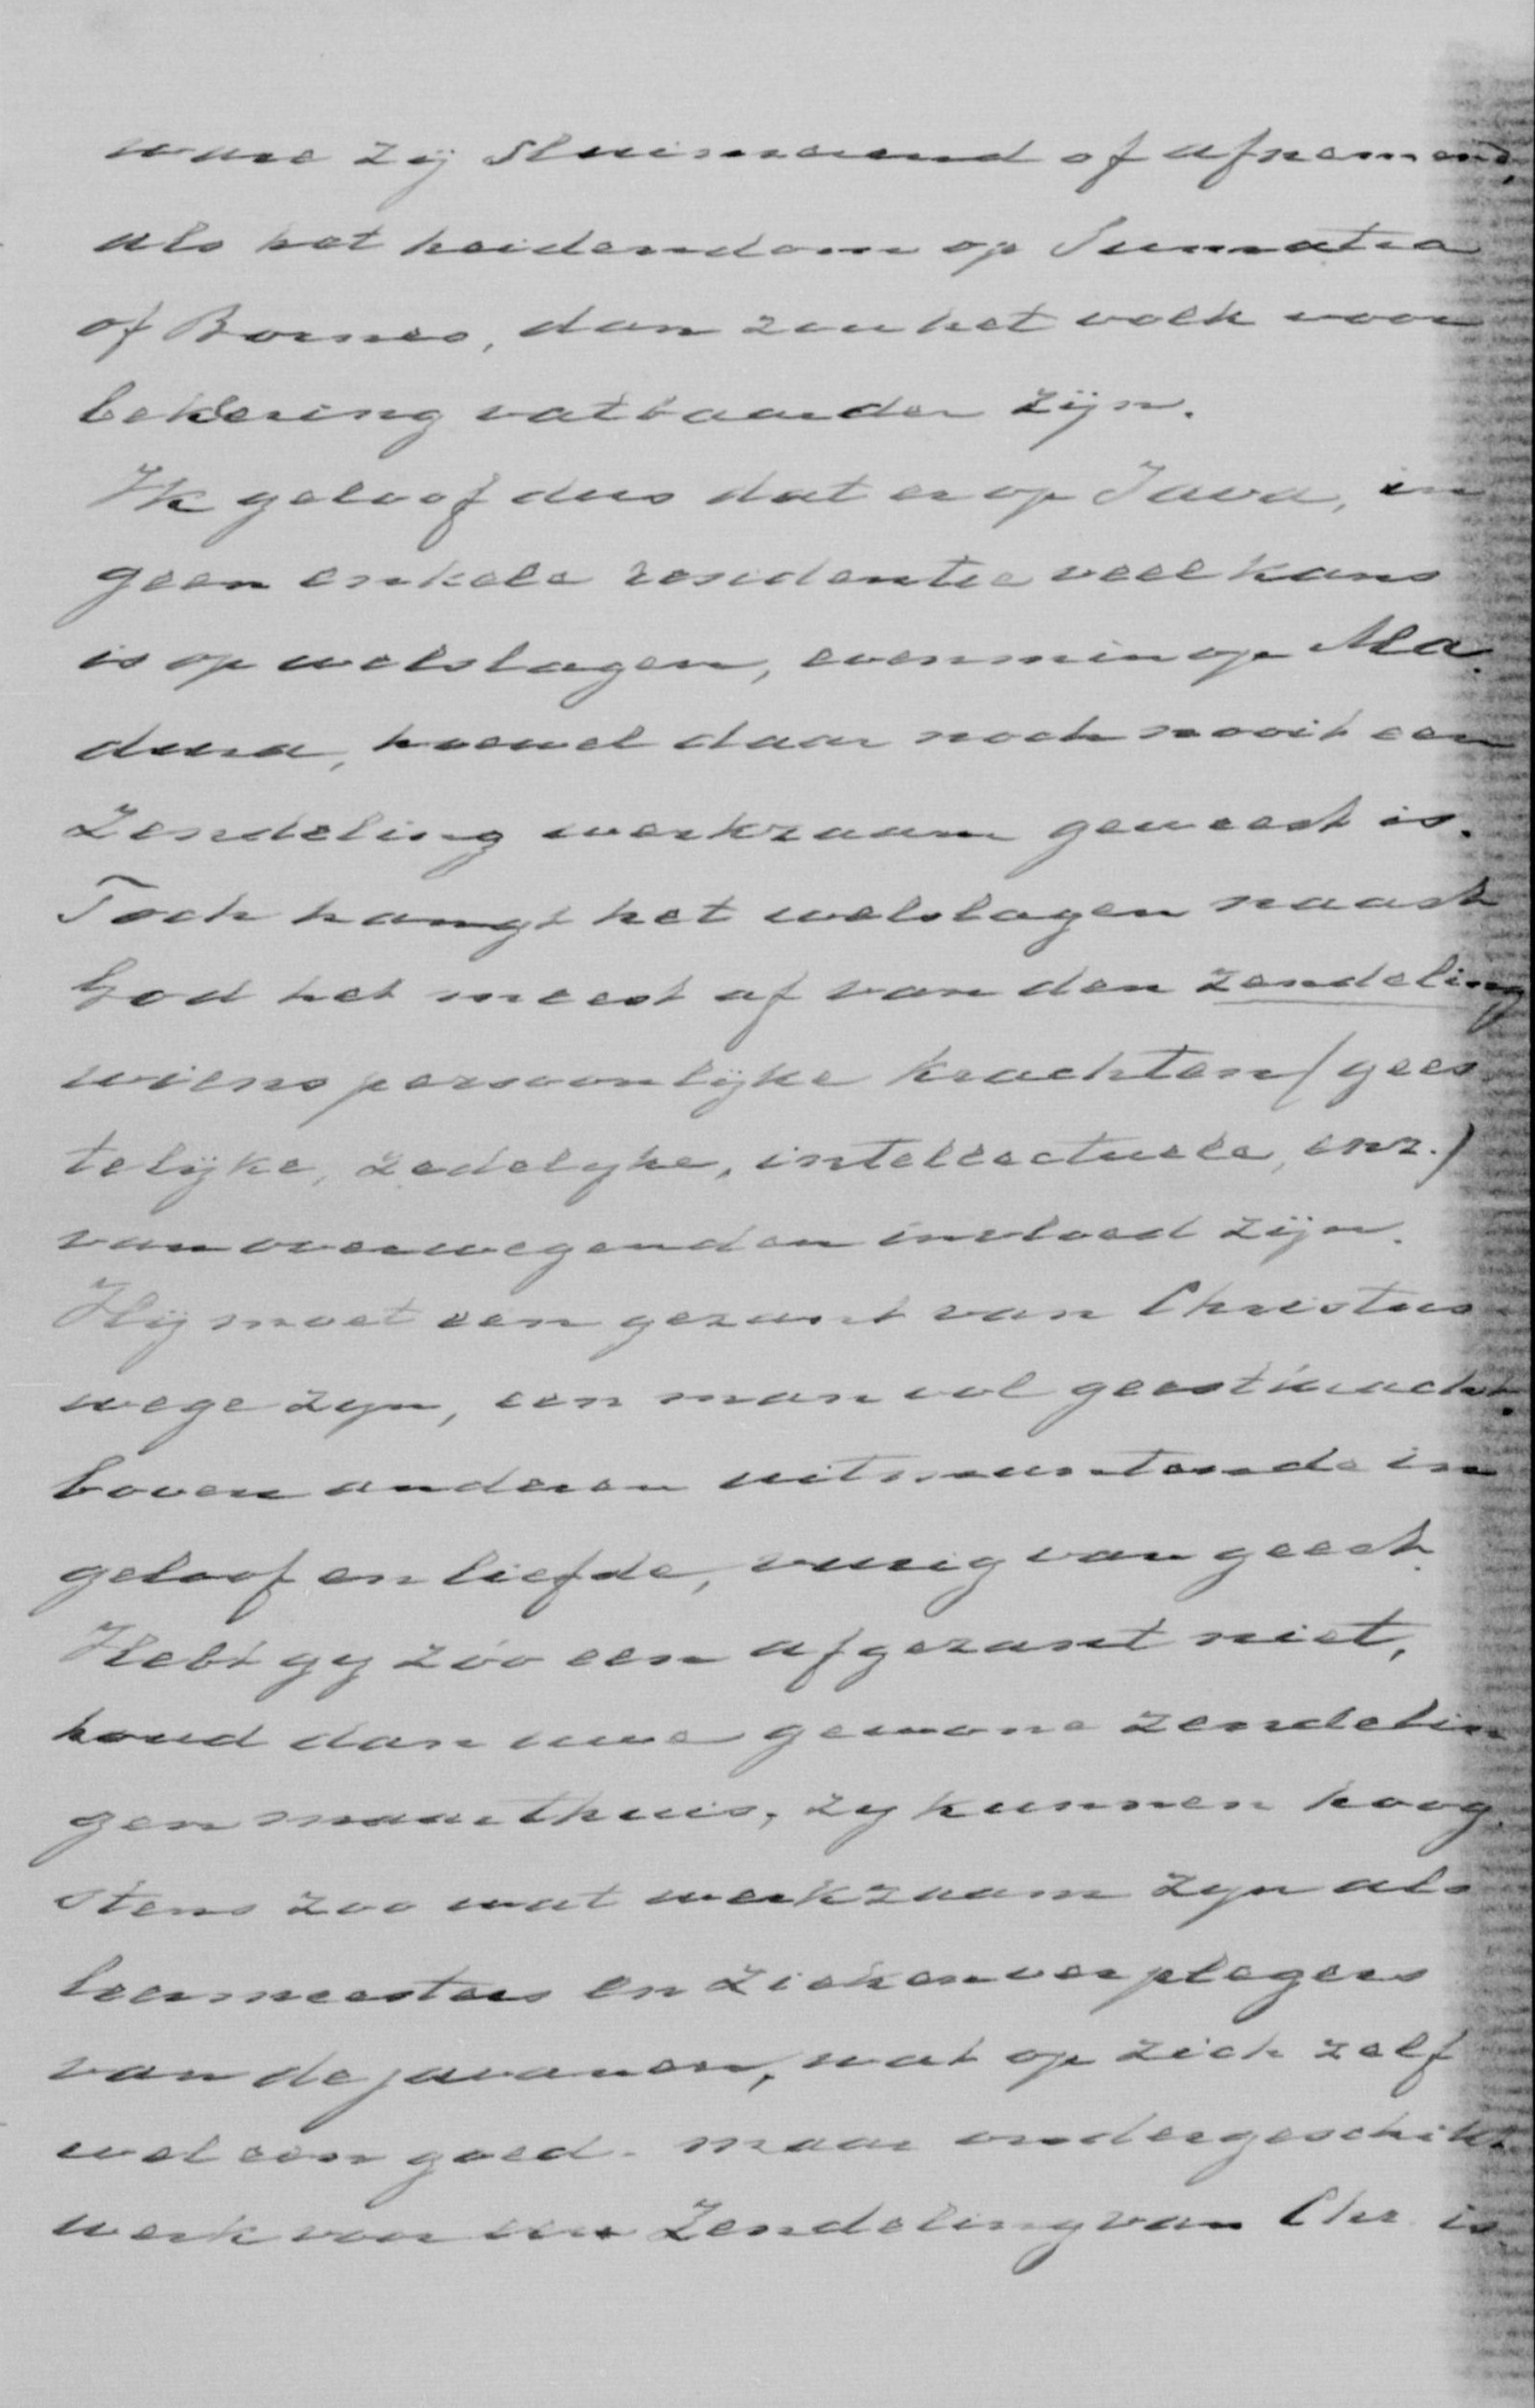 ware zij sluimerend of afnemend,
als het heidendom op Sumatra
of Borneo, dan zou het volk voor
bekeering vatbaarder zijn.
Ik geloof dus dat er op Java, in
geen enkele residentie veel kans
is op welslagen, evenmin op Ma-
dura, hoewel daar noch nooit een
Zendeling werkzaam geweest is.
Toch hangt het welslagen naast
God het meest af van den zendeling
wiens persoonlijke krachten (gees
telijke, zedelyke, intellectuele, enz.)
van overwegenden invloed zijn.
Hij moet een gezant van Christus
wege zyn, een man vol geestkracht,
boven anderen uitmuntende in
geloof en liefde, vurig van geest.
Hebt gy zóo een afgezant niet,
houd dan uwe gewone zendelin
gen maar thuis, zy kunnen hoog-
stens zoo wat werkzaam zyn als
leermeesters en ziekenverplegers
van de javanen, wat op zich zelf
wel een goed - maar ondergeschikt
werk voor een Zendeling van Chr. is.